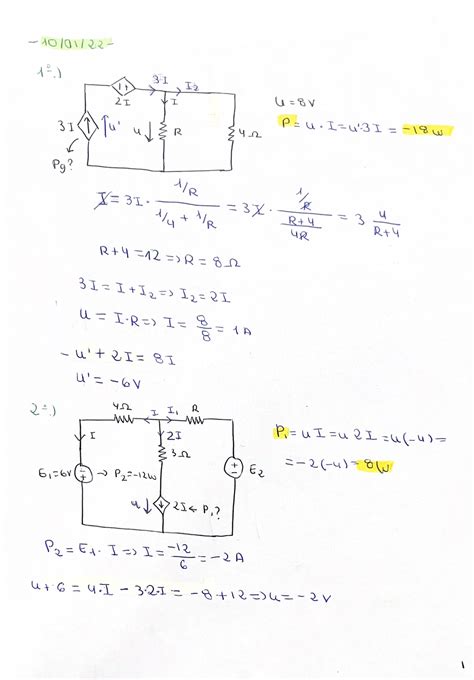 - 10/01/22 -
1º.)
3·I
I₂
2I
I
3I
u'
u
R
4Ω
Pg?
u = 8V
P = u · I = u'·3I = -18W
I = 3I · (1/R)/(1/4 + 1/R) = 3I · (1/R)/((R+4)/4R) = 3 4/(R+4)
R+4 = 12 => R = 8Ω
3I = I + I₂ => I₂ = 2I
u = I·R => I = 8/8 = 1A
-u' + 2I = 8I
u' = -6V
2º.)
4Ω
I
I₁
R
I
2I
3Ω
E₁=6V
→ P₂=-12W
E₂
u
2I ← P₁?
P₁ = u I = u 2I = u(-4) =
= -2(-4) = 8W
P₂ = E₁ · I => I = -12/6 = -2A
u + 6 = 4·I - 3·2·I = -8 + 12 => u = -2V
1